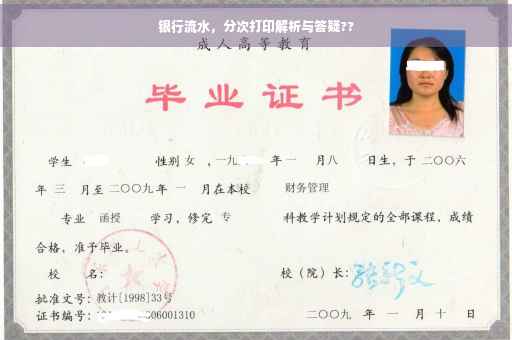 银行流水，分次打印解析与答疑??
成人高等教育
毕业证书
学生 性别 女 ，一九 年 一 月八 日生，于 二〇〇六
年 三 月至 二〇〇九 年 一 月在本校 财务管理
专业 函授 学习，修完 专 科教学计划规定的全部课程，成绩
合格，准予毕业。
校 名： 校（院）长：
批准文号：教计[1998]33号
证书编号： 06001310 二〇〇九 年 一 月 十 日